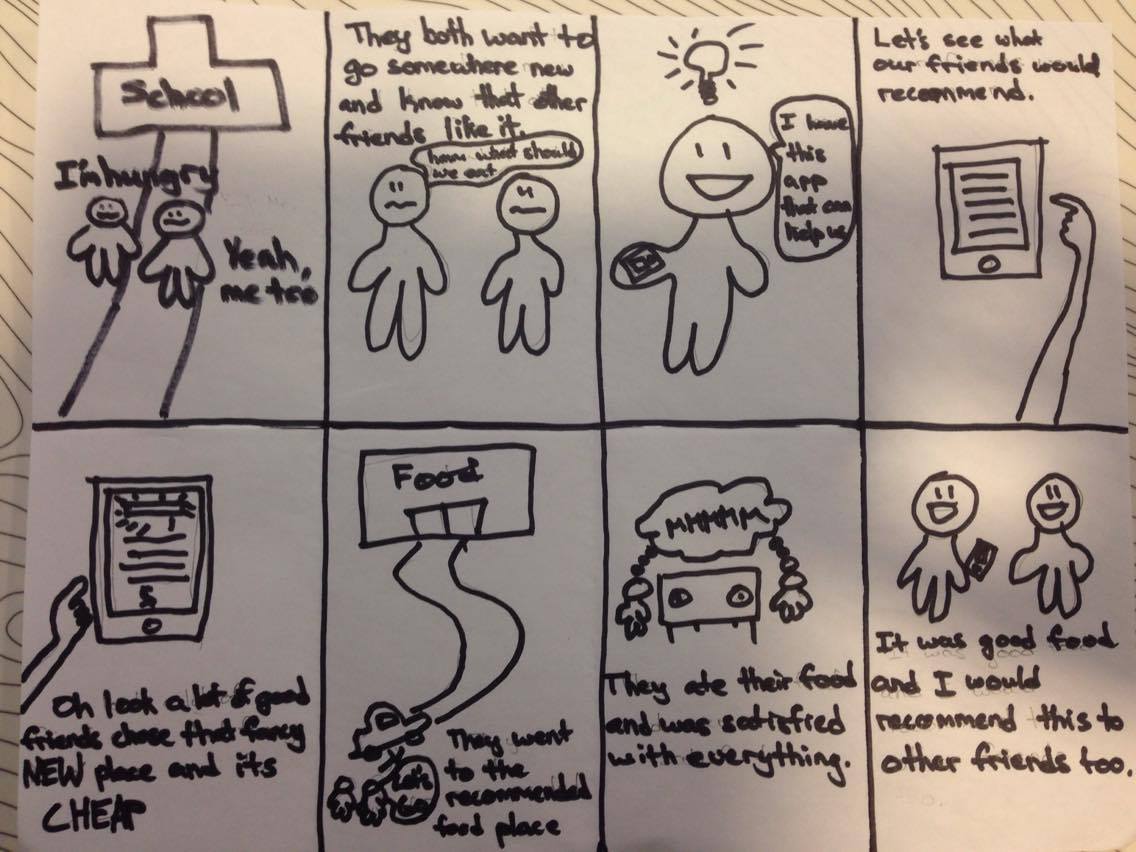 School
I'm hungry
Yeah,
me too
They both want to
go somewhere new
and know that other
friends like it.
hmm what should
we eat
I have
this
app
that can
help us
Let's see what
our friends would
recommend.
$
Oh look a lot of good
friends chose that fancy
NEW place and its
CHEAP
Food
Let's
Go
They went
to the
recommended
food place
MMMMM
They ate their food
and was satisfied
with everything.
It was good food
and I would
recommend this to
other friends too.